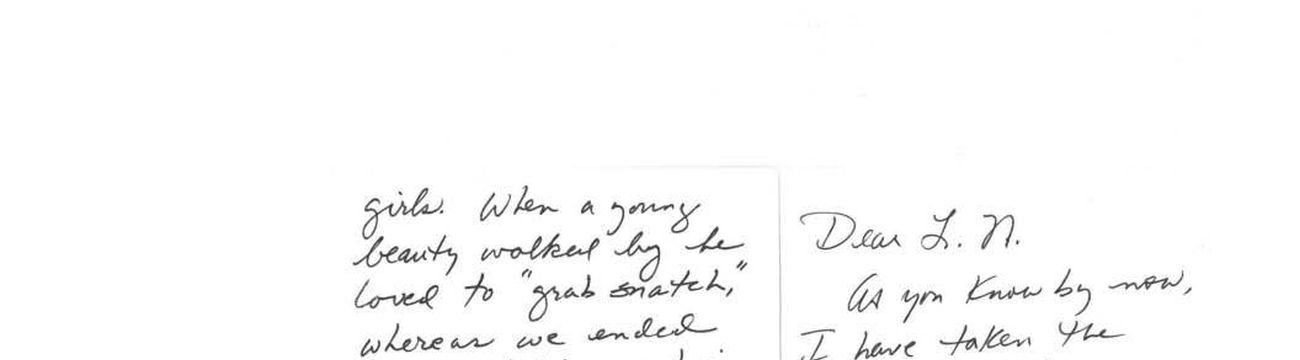 girls. When a young
beauty walked by he
loved to "grab snatch,"
whereas we ended
Dear L. N.
As you know by now,
I have taken the